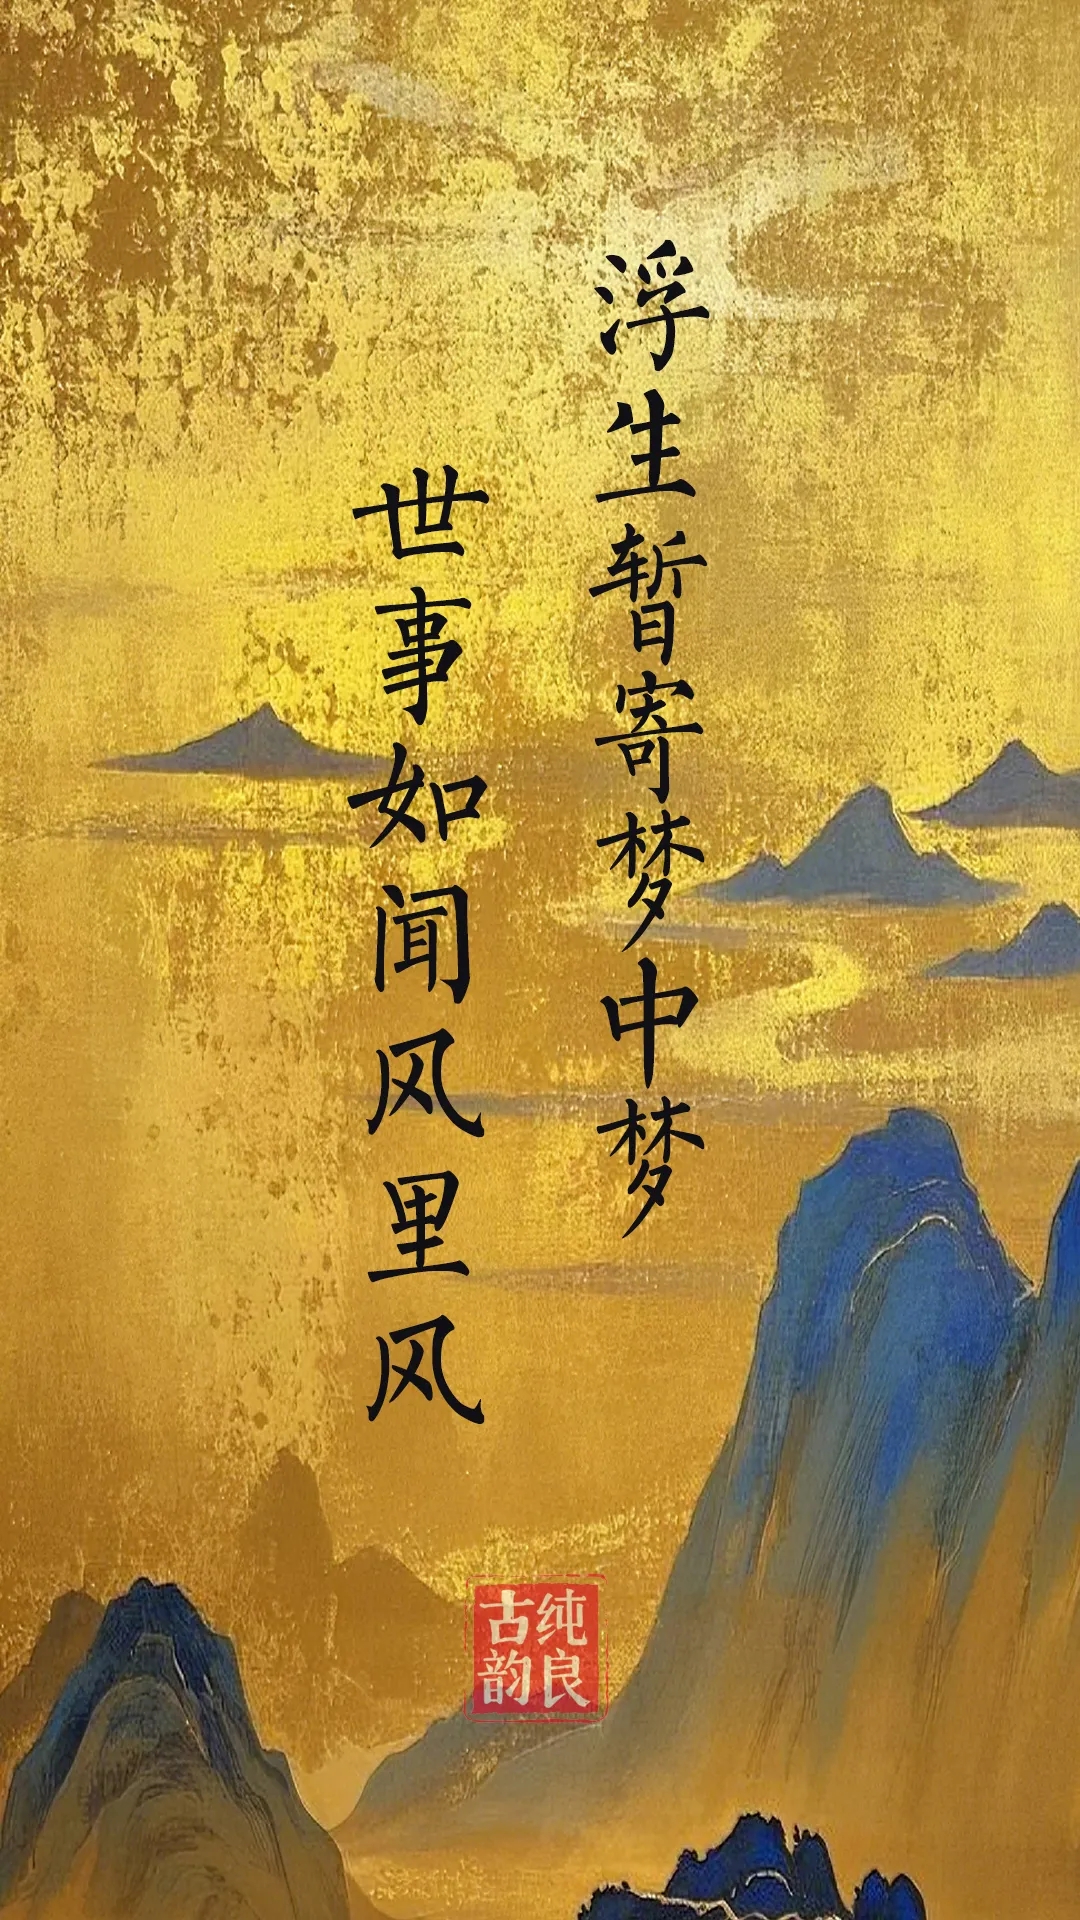 浮生暂寄梦中梦
世事如闻风里风
纯良
古韵